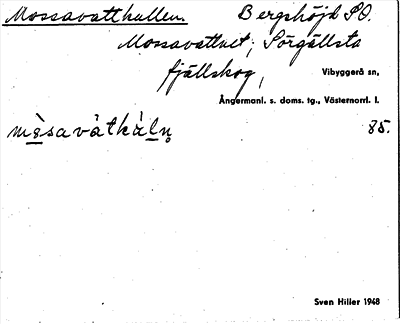 Mossavattkullen. Bergshöjd SO.
Mossavattnet, Sörgällsta
fjällskog, Vibyggerå sn,
Ångermanl. s. doms. tg., Västernorrl. l.
mòsavàtkàln̥ 85.
Sven Hiller 1948